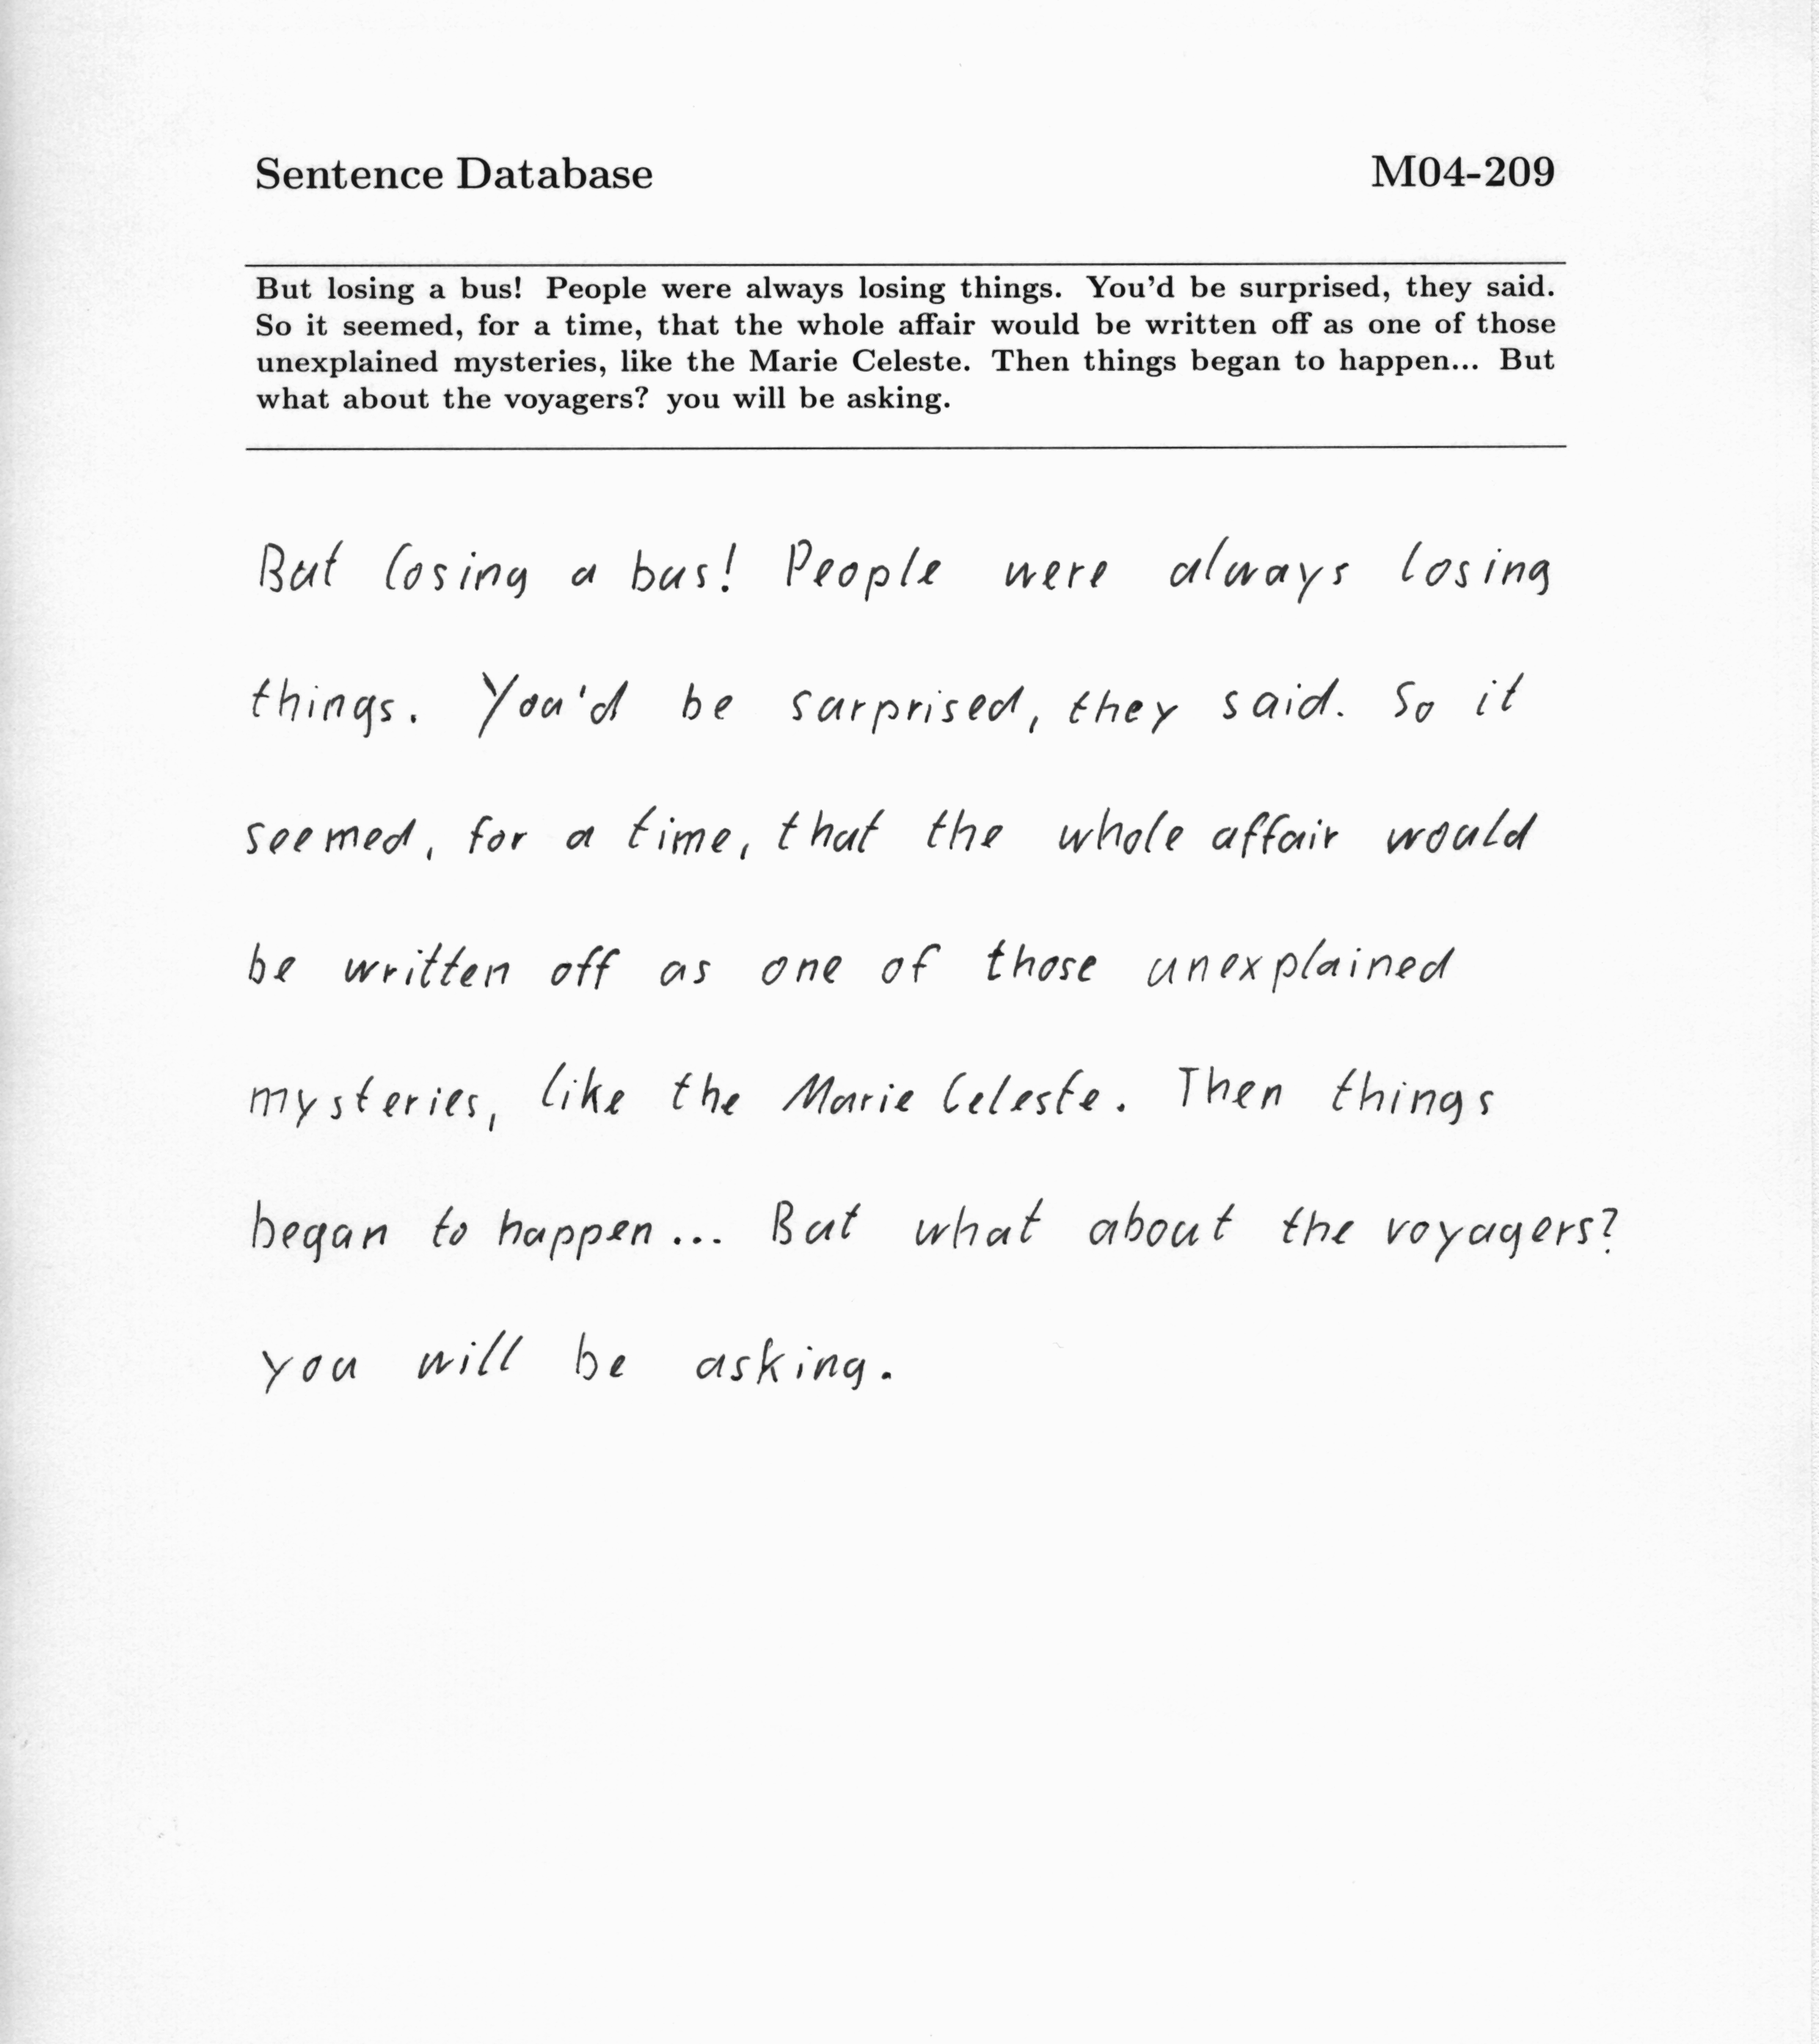 Sentence Database M04-209
But losing a bus! People were always losing things. You'd be surprised, they said.
So it seemed, for a time, that the whole affair would be written off as one of those
unexplained mysteries, like the Marie Celeste. Then things began to happen... But
what about the voyagers? you will be asking.
But losing a bus! People were always losing
things. You'd be surprised, they said. So it
seemed, for a time, that the whole affair would
be written off as one of those unexplained
mysteries, like the Marie Celeste. Then things
began to happen... But what about the voyagers?
you will be asking.